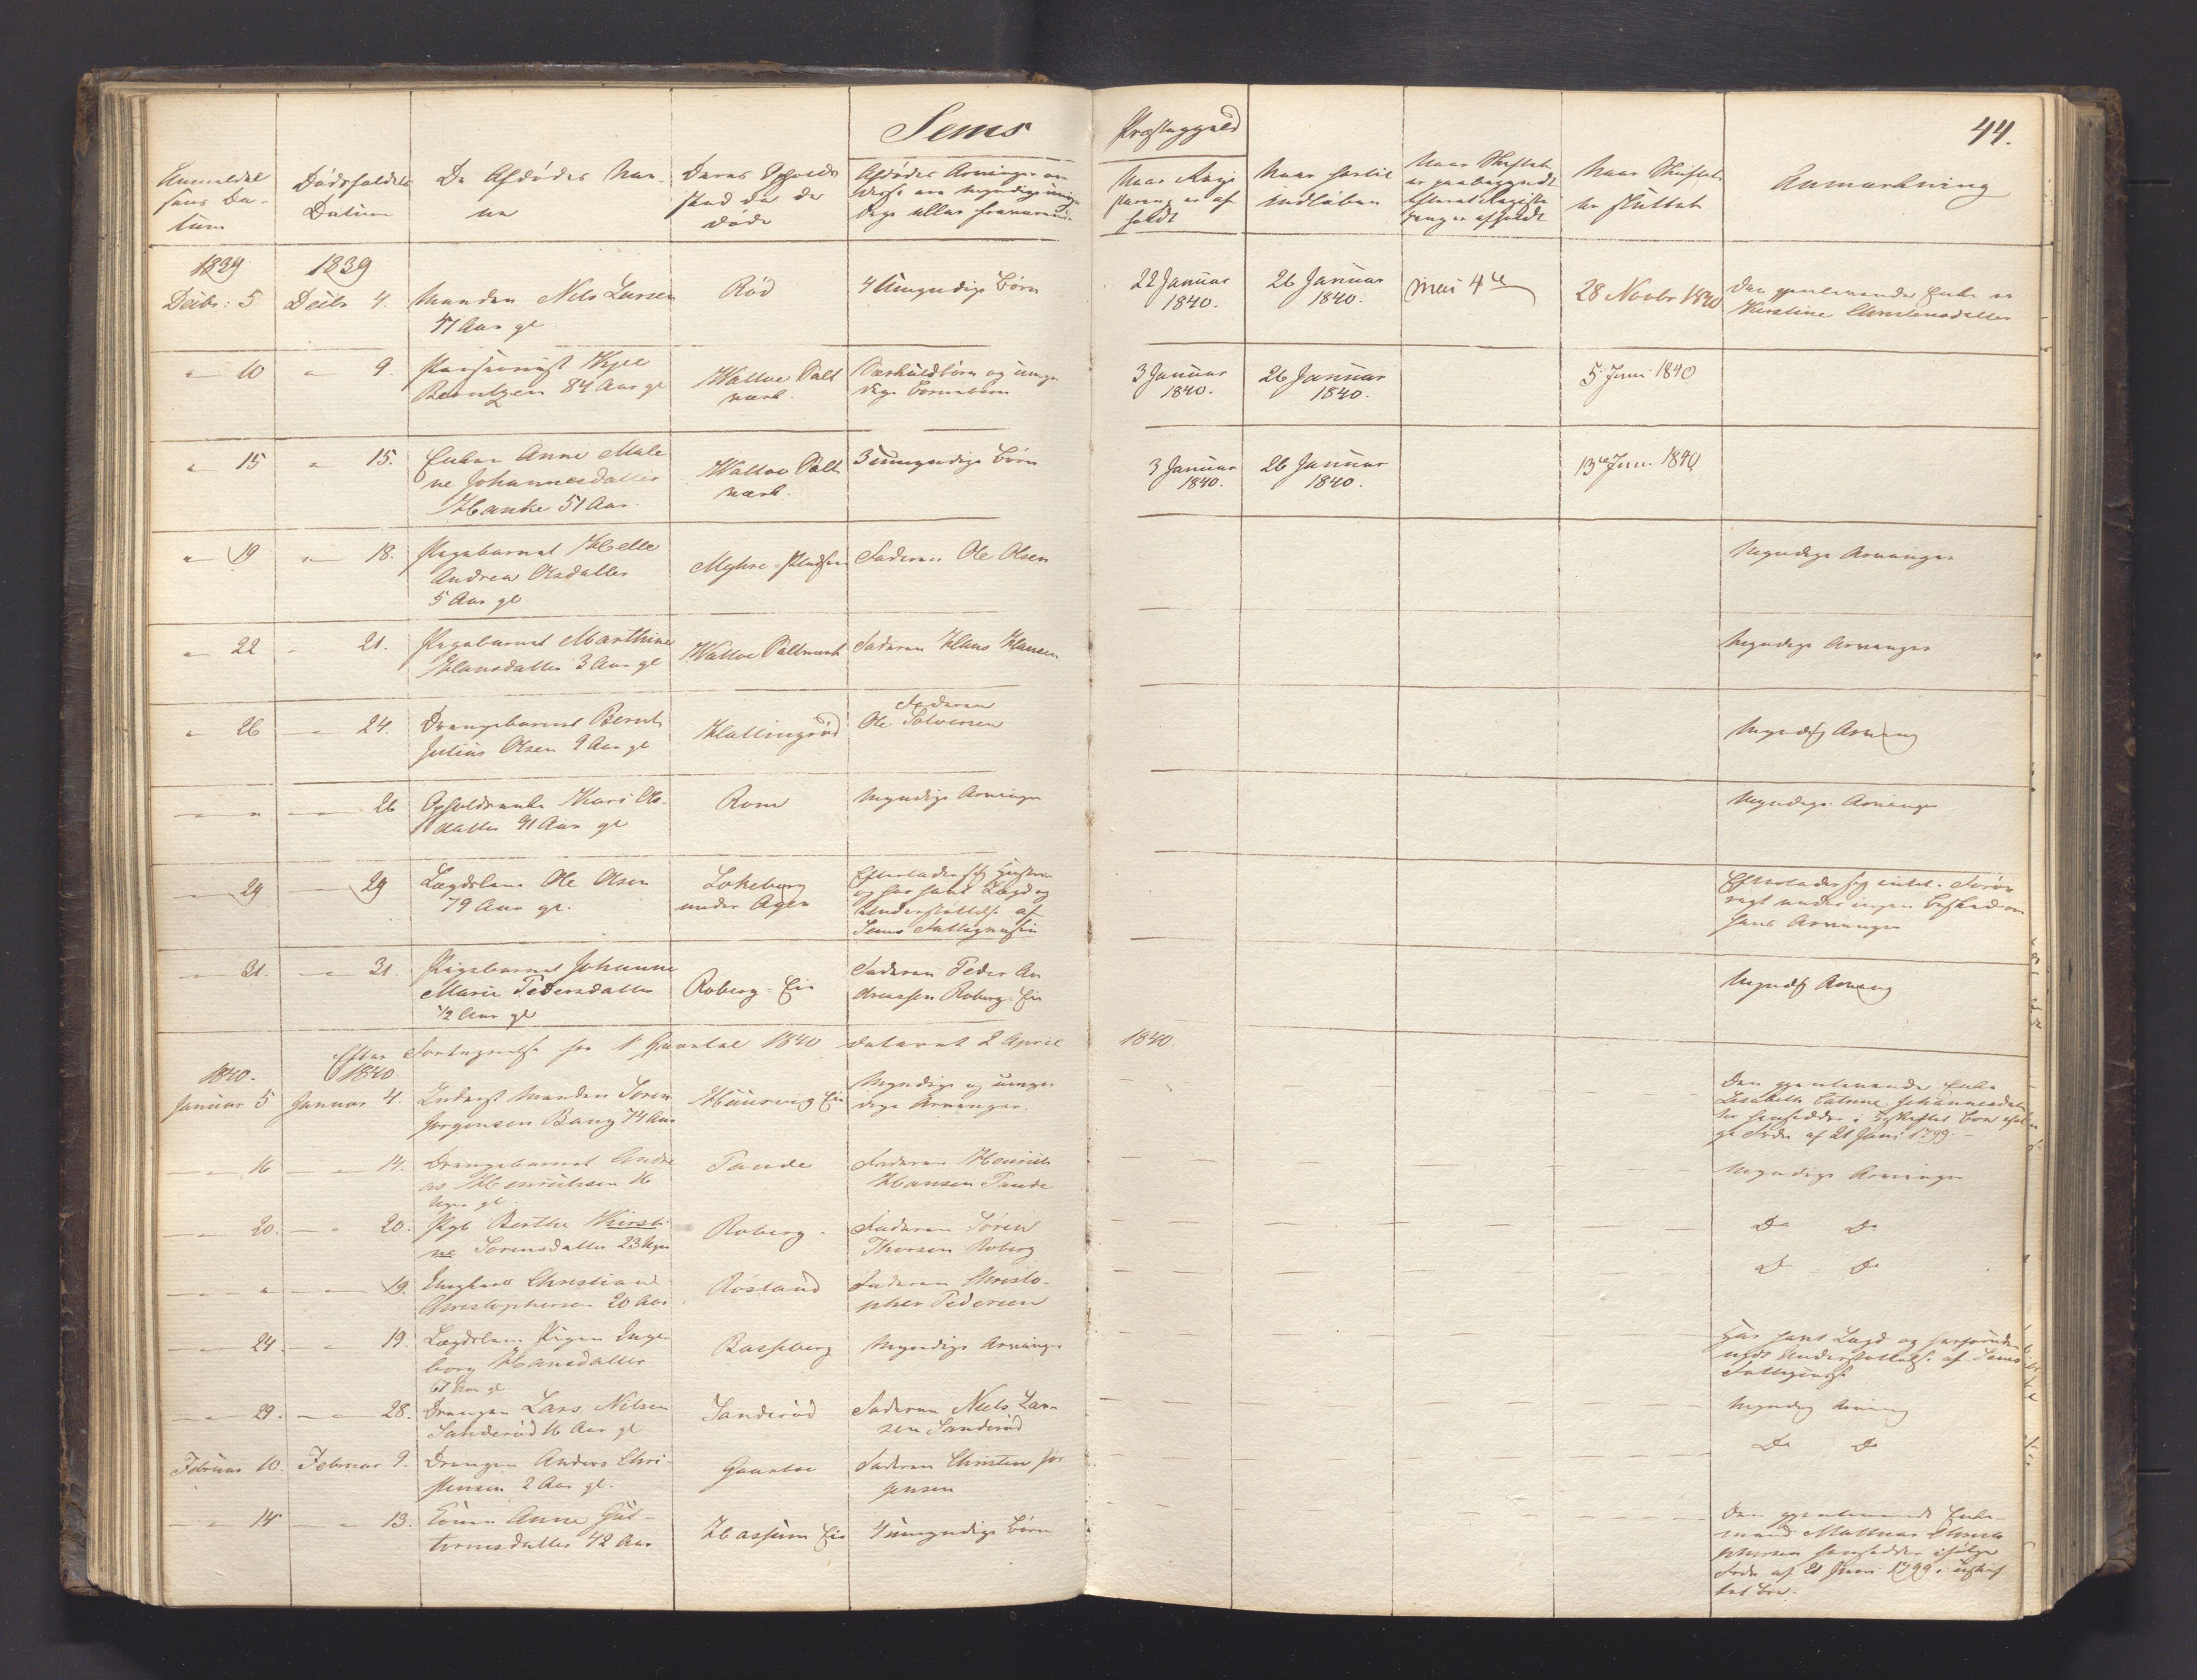 Sems Præstegjeld
44.
Anmeldel
sens Da-
tum
Dødsfaldets
Datum
De Afdødes Nav-
ne
Deres Opholds
sted da de
døde
Afdødes Arvinger om
disse ere myndige umyn
dige eller fraværende
Naar Regi
strering er af
holdt
Naar Forlit
indløben
Naar Skiftet
er paabegyndt
efterat Registe
ring er afholdt
Naar Skiftet
er sluttet
Anmærkning
1839
1839
Decbr: 5
Decbr 4.
Manden Nils Larsen
47 Aar gl
Rød
4 Umyndige Børn
22 Januar
1840.
26 Januar
1840.
Mai 4de
28 Novbr 1840
Den gjenlevende Enke er
Kirstine Christensdatter
" 10
" 9.
Pensionist Kjel
Berntzen 84 Aar gl
Walloe Salt
værk.
Særkuldbørn og umyn
dige Børnebørn
3 Januar
1840.
26 Januar
1840.
5 Juni 1840
" 15
" 15.
Enken Anne Male
ne Johannesdatter
Hanke 51 Aar.
Walloe Salt
værk.
3 umyndige Børn
3 Januar
1840.
26 Januar
1840.
13de Juni 1840
" 19
" 18.
Pigebarnet Helle
Andrea Olsdatter
5 Aar gl
Myhre-Pladsen
Faderen Ole Olsen
Myndige Arvinger
" 22
" 21.
Pigebarnet Marthine
Hansdatter 3 Aar gl
Walloe Saltværk
Faderen Hans Hansen
Myndige Arvinger
" 26
" 24.
Drengebarnet Bernt
Julius Olsen 9 Aar gl
Hallingrød
Faderen
Ole Salvesen
Myndig Arving
" "
" 26
Opholdsenke Kari Ols-
datter 91 Aar gl
Rom
Myndige Arvinger
Myndige Arvinger
" 29
" 29
Lægdslem Ole Olsen
79 Aar gl.
Lokeberg
under Agen
Efterlader sig Hustru
og har havt Lægd og
Understøttelse af
Sems Fattigvæsen
Efterlader sig intet. Forøv
rigt vides ingen Besked om
hans Arvinger
" 31.
" 31.
Pigebarnet Johanne
Marie Pedersdatter
1/2 Aar gl
Roberg-Eie
Faderen Peder An
dreassen Roberg-Eie
Myndig Arving
Efter Fortegnelse for 1 Qvartal 1840 dateret 2 April 1840.
1840.
1840
Januar 5
Januar 4.
Inderst Manden Søren
Jørgensen Bang 74 Aar
Huusvig Eie
Myndige og umyn
dige Arvinger.
Den gjenlevende Enke
Lisabeth Catrine Johannesdat
ter hensidder i uskiftet Boe iføl
ge Frdn af 21 Juni 1799.
" 16
" 14.
Drengebarnet Andre
as Henrichsen 16
Uger gl
Tande
Faderen Henrich
Hansen Tande
Myndige Arvinger
" 20.
" 20.
Pgb Berthe Kirsti-
ne Sorensdatter 23 Uger
Roberg.
Faderen Sören
Thorsen Roberg
Do Do
" "
" 19.
Ungkarl Christian
Christophersen 20 Aar
Røsland
Faderen Christo-
pher Pedersen
Do Do
" 24.
" 19.
Lægdslem Pigen Inge
borg Hansdatter
67 Aar gl
Basberg
Myndige Arvinger
Har havt Lægd
Understøttelse af Sems
" 29.
" 28.
Drengen Lars Nilsen
Sanderød 16 Aar gl
Sanderød
Faderen Niels Lar-
sen Sanderød
Myndig Arving
Februar 10.
Februar 9.
Drengen Anders Chri-
stensen 2 Aar gl.
Gaarboe
Faderen Christen Jör
gensen
Do Do
" 14
" 13.
Konen Anne Gut-
tormsdatter 42 Aar
Hassum Eie
4 umyndige Børn
Den gjenlevende Enke-
mand Mathias Christo
phersen hensidder ifølge
Frdn af 21 Juni 1799 i uskif
tet Boe.